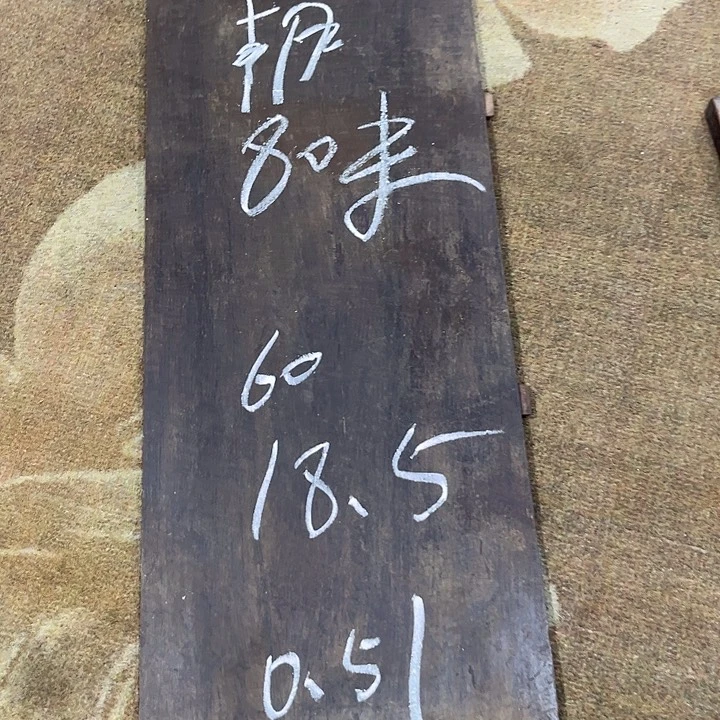 80米
60
18.5
0.51